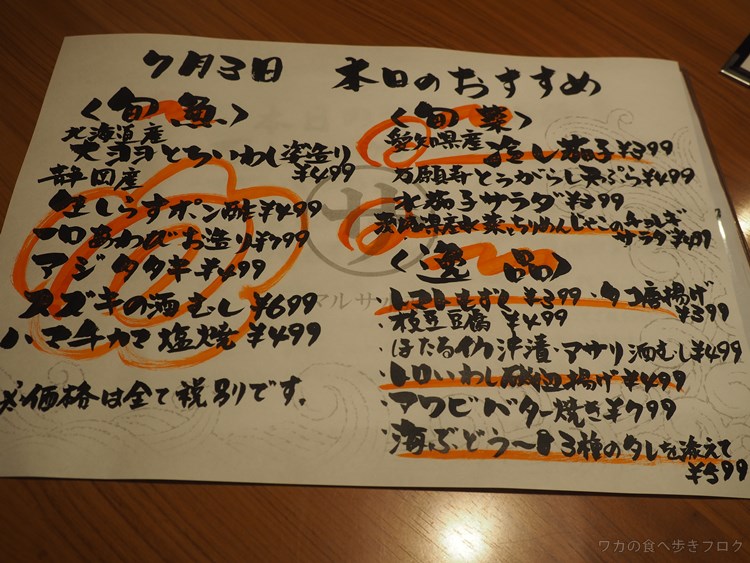 7月3日 本日のおすすめ
<旬魚>
北海道産
大ヨヨとろいわし姿造り
¥499
静岡産
生しらすポン酢¥499
一口あわびお造り¥799
アジタタキ¥499
スズキの酒むし¥699
ハマチカマ塩焼¥499
※価格は全て税別です。
<旬菜>
愛知県産
冷し茄子¥399
万願寺とうがらし天ぷら¥499
水茄子サラダ¥399
茨城県産水菜とちりめんじゃこの
サラダ
<逸品>
トマトもずく¥399・タコ唐揚げ
¥399
枝豆豆腐 ¥499
ほたるイカ沖漬・アサリ酒むし¥499
トロいわし磯辺揚げ¥499
アワビバター焼き¥799
海ぶどう〜3種のタレを添えて
¥599
サ
マルサ
ワカの食べ歩きブログ